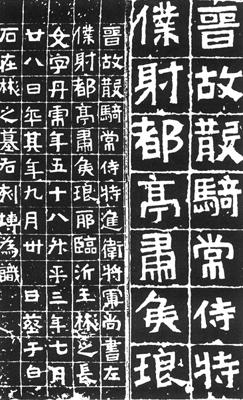 晉故散騎常侍特
僕射都亭肅侯琅
晉故散騎常侍特進衛將軍尚書左
僕射都亭肅侯琅耶臨沂王彬之長
女字丹虎年五十八升平三年七月
廿八日卒其年九月卅日葬于白
石在彬之墓右刻塼為識